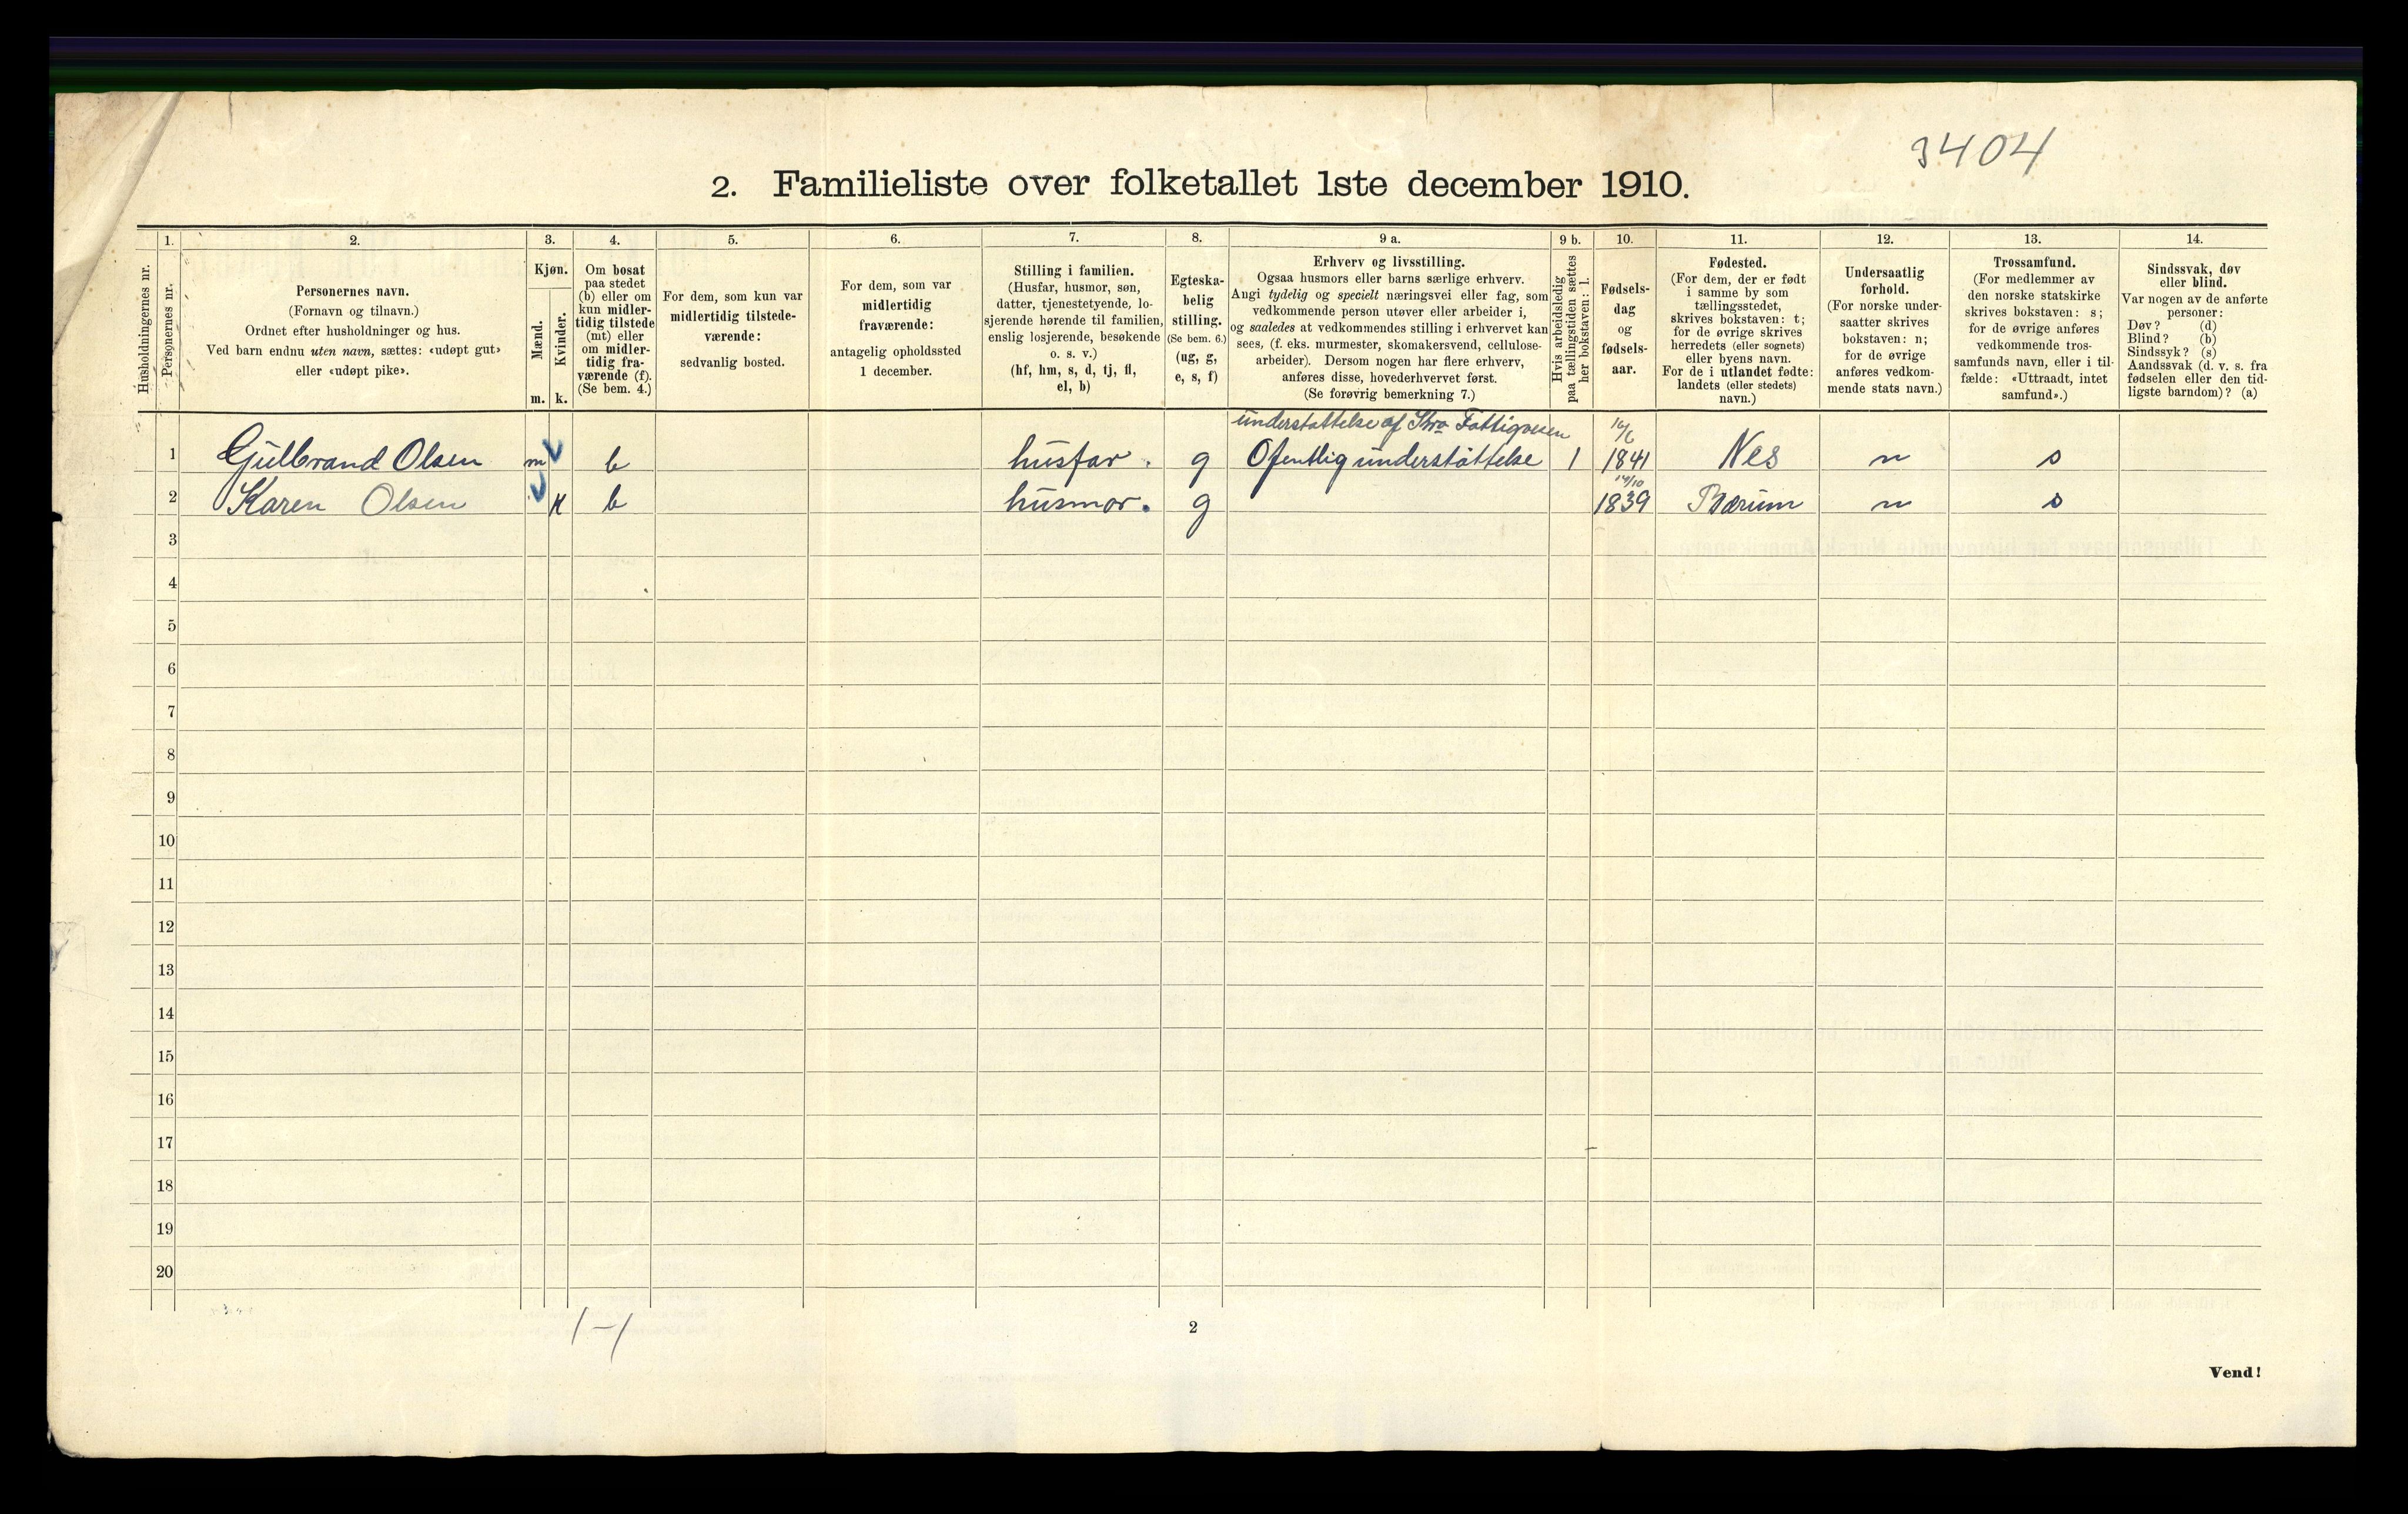 3404
2. Familieliste over folketallet 1ste december 1910.
Husholdningernes nr.
1.
Personernes nr.
2.
Personernes navn.
(Fornavn og tilnavn.)
Ordnet efter husholdninger og hus.
Ved barn endnu uten navn, sættes: «udøpt gut»
eller «udøpt pike».
3.
Kjøn.
Mænd.
Kvinder.
m. k.
4.
Om bosat
paa stedet
(b) eller om
kun midler-
tidig tilstede
(mt) eller
om midler-
tidig fra-
værende (f).
(Se bem. 4.)
5.
For dem, som kun var
midlertidig tilstede-
værende:
sedvanlig bosted.
6.
For dem, som var
midlertidig
fraværende:
antagelig opholdssted
1 december.
7.
Stilling i familien.
(Husfar, husmor, søn,
datter, tjenestetyende, lo-
sjerende hørende til familien,
enslig losjerende, besøkende
o. s. v.)
(hf, hm, s, d, tj, fl,
el, b)
8.
Egteska-
belig
stilling.
(Se bem. 6.)
(ug, g,
e, s, f)
9 a.
Erhverv og livsstilling.
Ogsaa husmors eller barns særlige erhverv.
Angi tydelig og specielt næringsvei eller fag, som
vedkommende person utøver eller arbeider i,
og saaledes at vedkommendes stilling i erhvervet kan
sees, (f. eks. murmester, skomakersvend, cellulose-
arbeider). Dersom nogen har flere erhverv,
anføres disse, hovederhvervet først.
(Se forøvrig bemerkning 7.)
9 b.
Hvis arbeidsledig
paa tællingstiden sættes
her bokstaven: l.
10.
Fødsels-
dag
og
fødsels-
aar.
11.
Fødested.
(For dem, der er født
i samme by som
tællingsstedet,
skrives bokstaven: t;
for de øvrige skrives
herredets (eller sognets)
eller byens navn.
For de i utlandet fødte:
landets (eller stedets)
navn.)
12.
Undersaatlig
forhold.
(For norske under-
saatter skrives
bokstaven: n;
for de øvrige
anføres vedkom-
mende stats navn.)
13.
Trossamfund.
(For medlemmer av
den norske statskirke
skrives bokstaven: s;
for de øvrige anføres
vedkommende tros-
samfunds navn, eller i til-
fælde: «Uttraadt, intet
samfund».)
14.
Sindssvak, døv
eller blind.
Var nogen av de anførte
personer:
Døv? (d)
Blind? (b)
Sindssyk? (s)
Aandssvak (d. v. s. fra
fødselen eller den tid-
ligste barndom)? (a)
understøttelse af Fattigvesen
1 Gulbrand Olsen m b husfar. g Ofentlig understøttelse 1 1841 Nes n s
14/10
2 Karen Olsen k b husmor. g 1839 Bærum n s
3
4
5
6
7
8
9
10
11
12
13
14
15
16
17
18
19
20
1-1
2
Vend!